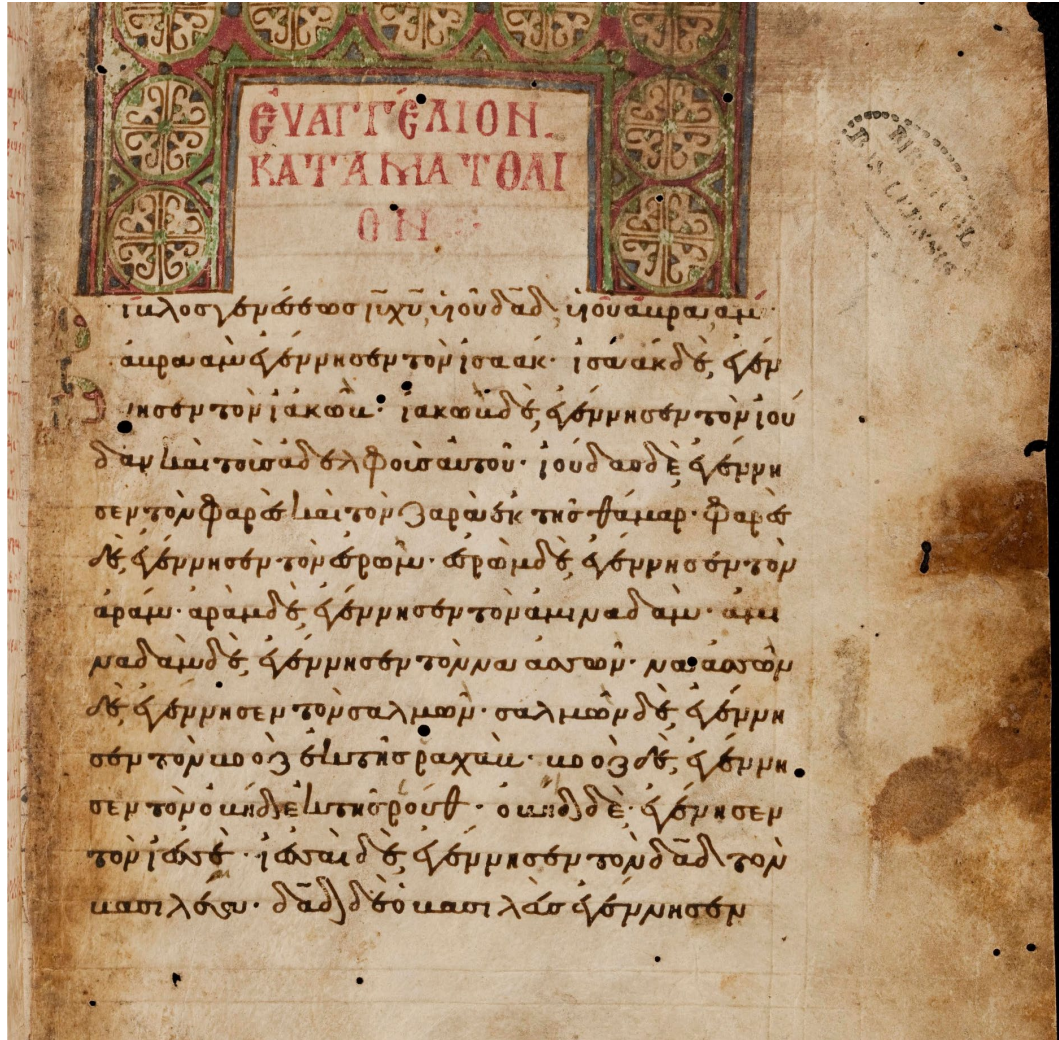 ΕΥΑΓΓΕΛΙΟΝ
ΚΑΤΑ ΜΑΤΘΑΙ
ΟΝ
βίβλος γενέσεως ἰ̅υ̅ χ̅υ̅, υἱοῦ δα̅δ̅, υἱοῦ ἀβραάμ·
ἀβραὰμ ἐγέννησεν τὸν ἰσαάκ· ἰσαὰκ δὲ, ἐγέν
νησεν τὸν ἰακώβ· ἰακὼβ δὲ, ἐγέννησεν τὸν ἰού
δαν καὶ τοὺς ἀδελφοὺς αὐτοῦ· ἰούδας δὲ ἐγέννη
σεν τὸν φαρὲς καὶ τὸν ζαρὰ ἐκ τῆς θάμαρ· φαρὲς
δὲ, ἐγέννησεν τὸν ἐσρώμ· ἐσρὼμ δὲ, ἐγέννησεν τὸν
ἀράμ· ἀρὰμ δὲ, ἐγέννησεν τὸν ἀμιναδάμ· ἀμι
ναδὰμ δὲ, ἐγέννησεν τὸν ναασσών· ναασσὼν
δὲ, ἐγέννησεν τὸν σαλμών· σαλμὼν δὲ, ἐγέννη
σεν τὸν βοὸζ ἐκ τῆς ῥαχάβ· βοὸζ δὲ, ἐγέννη
σεν τὸν ὀβὴδ ἐκ τῆς ῥούθ· ὀβὴδ δὲ· ἐγέννησεν
τὸν ἰεσσέ· ἰεσσαὶ δὲ, ἐγέννησεν τὸν δα̅δ̅ τὸν
βασιλέα· δα̅δ̅ δὲ ὁ βασιλεὺς ἐγέννησεν